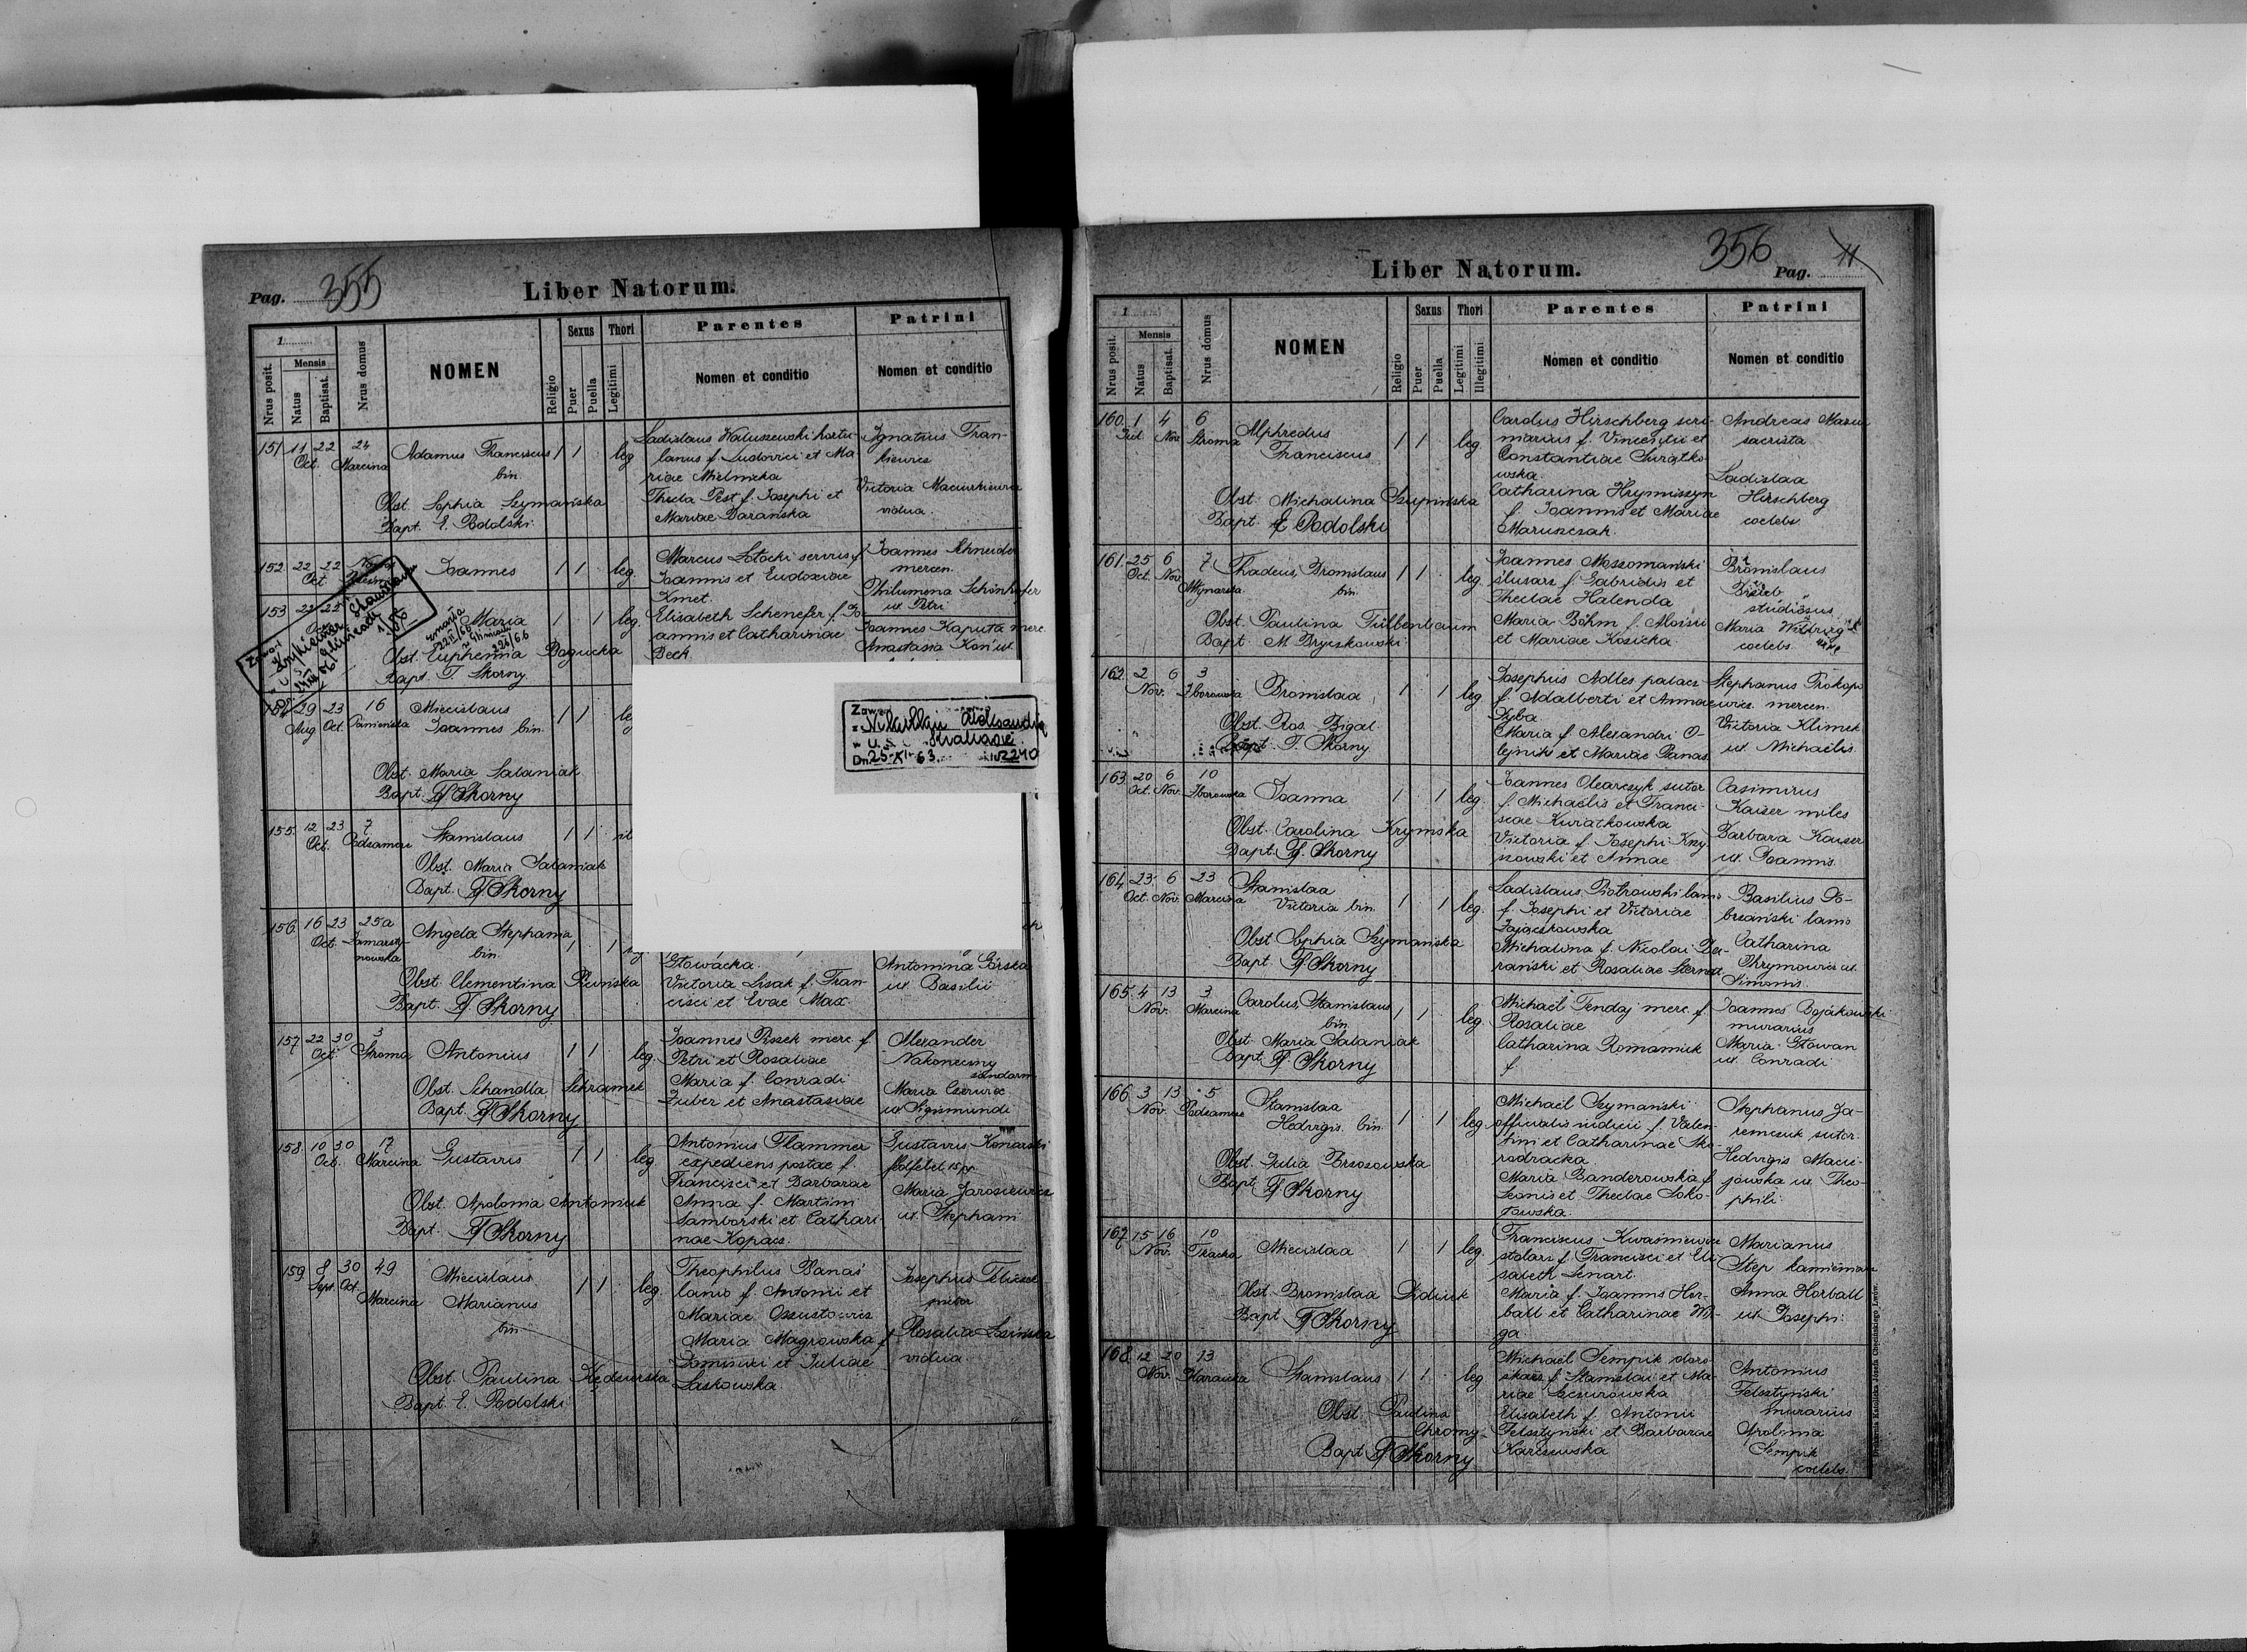 Pag. 355
Liber Natorum.
Nrus posit.
1
Mensis
Natus
Baptisat.
Nrus domus
NOMEN
Religio
Sexus
Puer
Puella
Thori
Legitimi
Parentes
Nomen et conditio
Patrini
Nomen et conditio
151 11 22 24
Oct. Marcina
Adamus Franciscus
bin.
1 1 leg
Ladislaus Waluszewski hortu-
lanus f. Ludovici et Ma
riae Mielnicka
Thecla Pest f. Josephi et
Mariae Barańska
Ignatius Fran-
kiewicz
Victoria
vidua.
Obst. Sophia Szymańska
Bapt. E. Podolski
152 22 22
Oct
Joannes
1 1 leg.
Marcus servus f.
Joannis et Eudoxiae
Kmet.
Elisabeth Schenefer f. Jo
annis et Catharinae
Beck.
Joannes Schneider
mercen.
Philumena Schönhofer
ux. Petri
153 22 22
Maria
zmarła
1 1 leg.
Joannes Kaputa merc.
Anastasia
Obst. Euphemia Bogucka
Bapt. F. Skorny
29 23 16
Aug Oct.
Miecislaus
Joannes bin.
1 1
Obst. Maria Salaniak
Bapt. F. Skorny
Zawarł
Aleksandrą
w U.S.
Dn. 25-XI-63. 2240
155. 12 23 7
Oct. Podzamcze
Stanislaus
1 1
Obst. Maria Salaniak
Bapt. F. Skorny
156. 16 23 25a
Oct. Zamarsty-
nowska
Angela Stephania
bin.
1 1
Głowacka.
Victoria Lisak f. Fran-
cisci et Evae Max.
Antonina Górska
ux. Basilii
Obst. Clementina
Bapt. F. Skorny
157 22 30 3
Oct. Stroma
Antonius
1 1 leg.
Joannes Piszek merc. f.
Petri et Rosaliae
Maria f. Conradi
Zuber et Anastasiae
Alexander
Nakoneczny
żandarm
Maria
ux. Sigismundi
Obst. Schandla Schramek
Bapt. F. Skorny
158. 10 30 17
Oct. Marcina
Gustavus
1 1 leg.
Antonius Flammer
expediens postae f.
Francisci et Barbarae
Anna f. Martini
Samborski et Cathari
nae Kopacz.
Gustavus Konarski
Maria Jarosiewicz
ux. Stephani
Obst. Apolonia Antoniuk
Bapt. F. Skorny
159 8 30 49
Sept. Oct. Marcina
Miecislaus
Marianus
bin
1 1 leg.
Theophilus Banaś
lanio f. Antonii et
Mariae Ossustowicz
Maria Magrowska f
Dominici et Juliae
Laskowska.
Josephus
pictor
Rosalia
vidua.
Obst. Paulina Kędzierska
Bapt. E. Podolski
Liber Natorum.
356 Pag. 11
Nrus posit.
1
Mensis
Natus
Baptisat.
Nrus domus
NOMEN
Religio
Sexus
Puer
Puella
Thori
Legitimi
Illegitimi
Parentes
Nomen et conditio
Patrini
Nomen et conditio
160. 1 4 6
Jul. Nov. Stroma
Alphredus
Franciscus
1 1 leg
Carolus Hirschberg scri-
marius f. Vincentii et
Constantiae
wska.
Catharina Hrymiszyn
f. Joannis et Mariae
Maruszczak.
Andreas Mazur
sacrista
Ladislaa
Hirschberg
coelebs.
Obst. Michalina Szupińska
Bapt. E Podolski
161. 25 6 7
Oct. Nov. Młynarska
Thadeus, Bronislaus
bin.
1 1 leg.
Joannes Moszomański
ślusarz f. Gabrielis et
Theclae Halenda
Maria Böhm f. Aloisii
et Mariae Kosicka.
Bronislaus
studiosus
Maria
coelebs.
Obst. Paulina Tülbenbaum
Bapt. M. Bryczkowski
162. 2 6 3
Nov. Zborowska
Bronislaa
1 1 leg
Josephus Adles palacz
f. Adalberti et Annae
Zyba.
Maria f. Alexandri O-
lejniki et Mariae Banas.
Stephanus Prokopo
wicz. mercen.
Victoria Klimek
ux. Michaelis.
Obst. Ros. Bigal
Bapt. F. Skorny
163. 20 6 10
Oct. Nov. Zborowska
Joanna
1 1 leg.
Joannes Olearczyk sutor
f. Michaelis et Franci-
scae Kwiatkowska
Victoria f. Josephi Krzy
szowski et Annae
Casimirus
Kaiser miles
Barbara Kaiser
ux. Joannis.
Obst. Carolina Krymska
Bapt. F. Skorny
164 23. 6 23
Oct. Nov. Marcina
Stanislaa
Victoria bin.
1 1 leg.
Ladislaus Piotrowski lanio
f. Josephi et Victoriae
Zajączkowska
Michalina f. Nicolai Ba-
rański et Rosaliae
Basilius Do-
brzański lanio
Catharina
Chrymowicz ux.
Simonis.
Obst Sophia Szymańska
Bapt. F. Skorny
165. 4 13 3
Nov. Marcina
Carolus, Stanislaus
bin
1 1 leg.
Michaël Tendaj merc. f.
Rosaliae
Catharina Romaniuk
f
Joannes Bojakowski
murarius
Maria Słowan
ux. Conradi
Obst. Maria Salaniak
Bapt. F. Skorny
166 3 13 5
Nov. Podzamcze
Stanislaa
Hedvigis. bin.
1 1 leg.
Michaël Szymański
officialis iudicii f. Valen
tini et Catharinae Sko-
rodracka
Maria Banderowska f
Leonis et Theclae Soko-
łowska.
Stephanus Ja-
remczuk sutor.
Hedvigis Macie-
jowska ux. Theo-
phili.
Obst. Julia Brzozowska
Bapt. F. Skorny
167 15 16 10
Nov. Tkacka
Miecislaa
1 1 leg.
Franciscus Kwaśniewicz
stolarz f. Francisci et Eli
sabeth Lenart.
Maria f. Joannis Hor-
ball et Catharinae Mi-
ga.
Marianus
Step kamieniarz
Anna Horball
ux. Josephi.
Obst. Bronislaa Dydiuk
Bapt. F. Skorny
168. 12 20 13
Nov. Karaicka
Stanislaus
1 1 leg
Michaël Sempik doro
żkarz f. Stanislai et Ma-
riae
Elisabeth f. Antonii
Felsztyński et Barbarae
Karczewska
Antonius
Felsztyński
murarius
Apolonia
Sempik
coelebs.
Obst. Paulina
Chromy
Bapt F. Skorny
Drukarnia Katolicka Józefa Chęcińskiego Lwów.